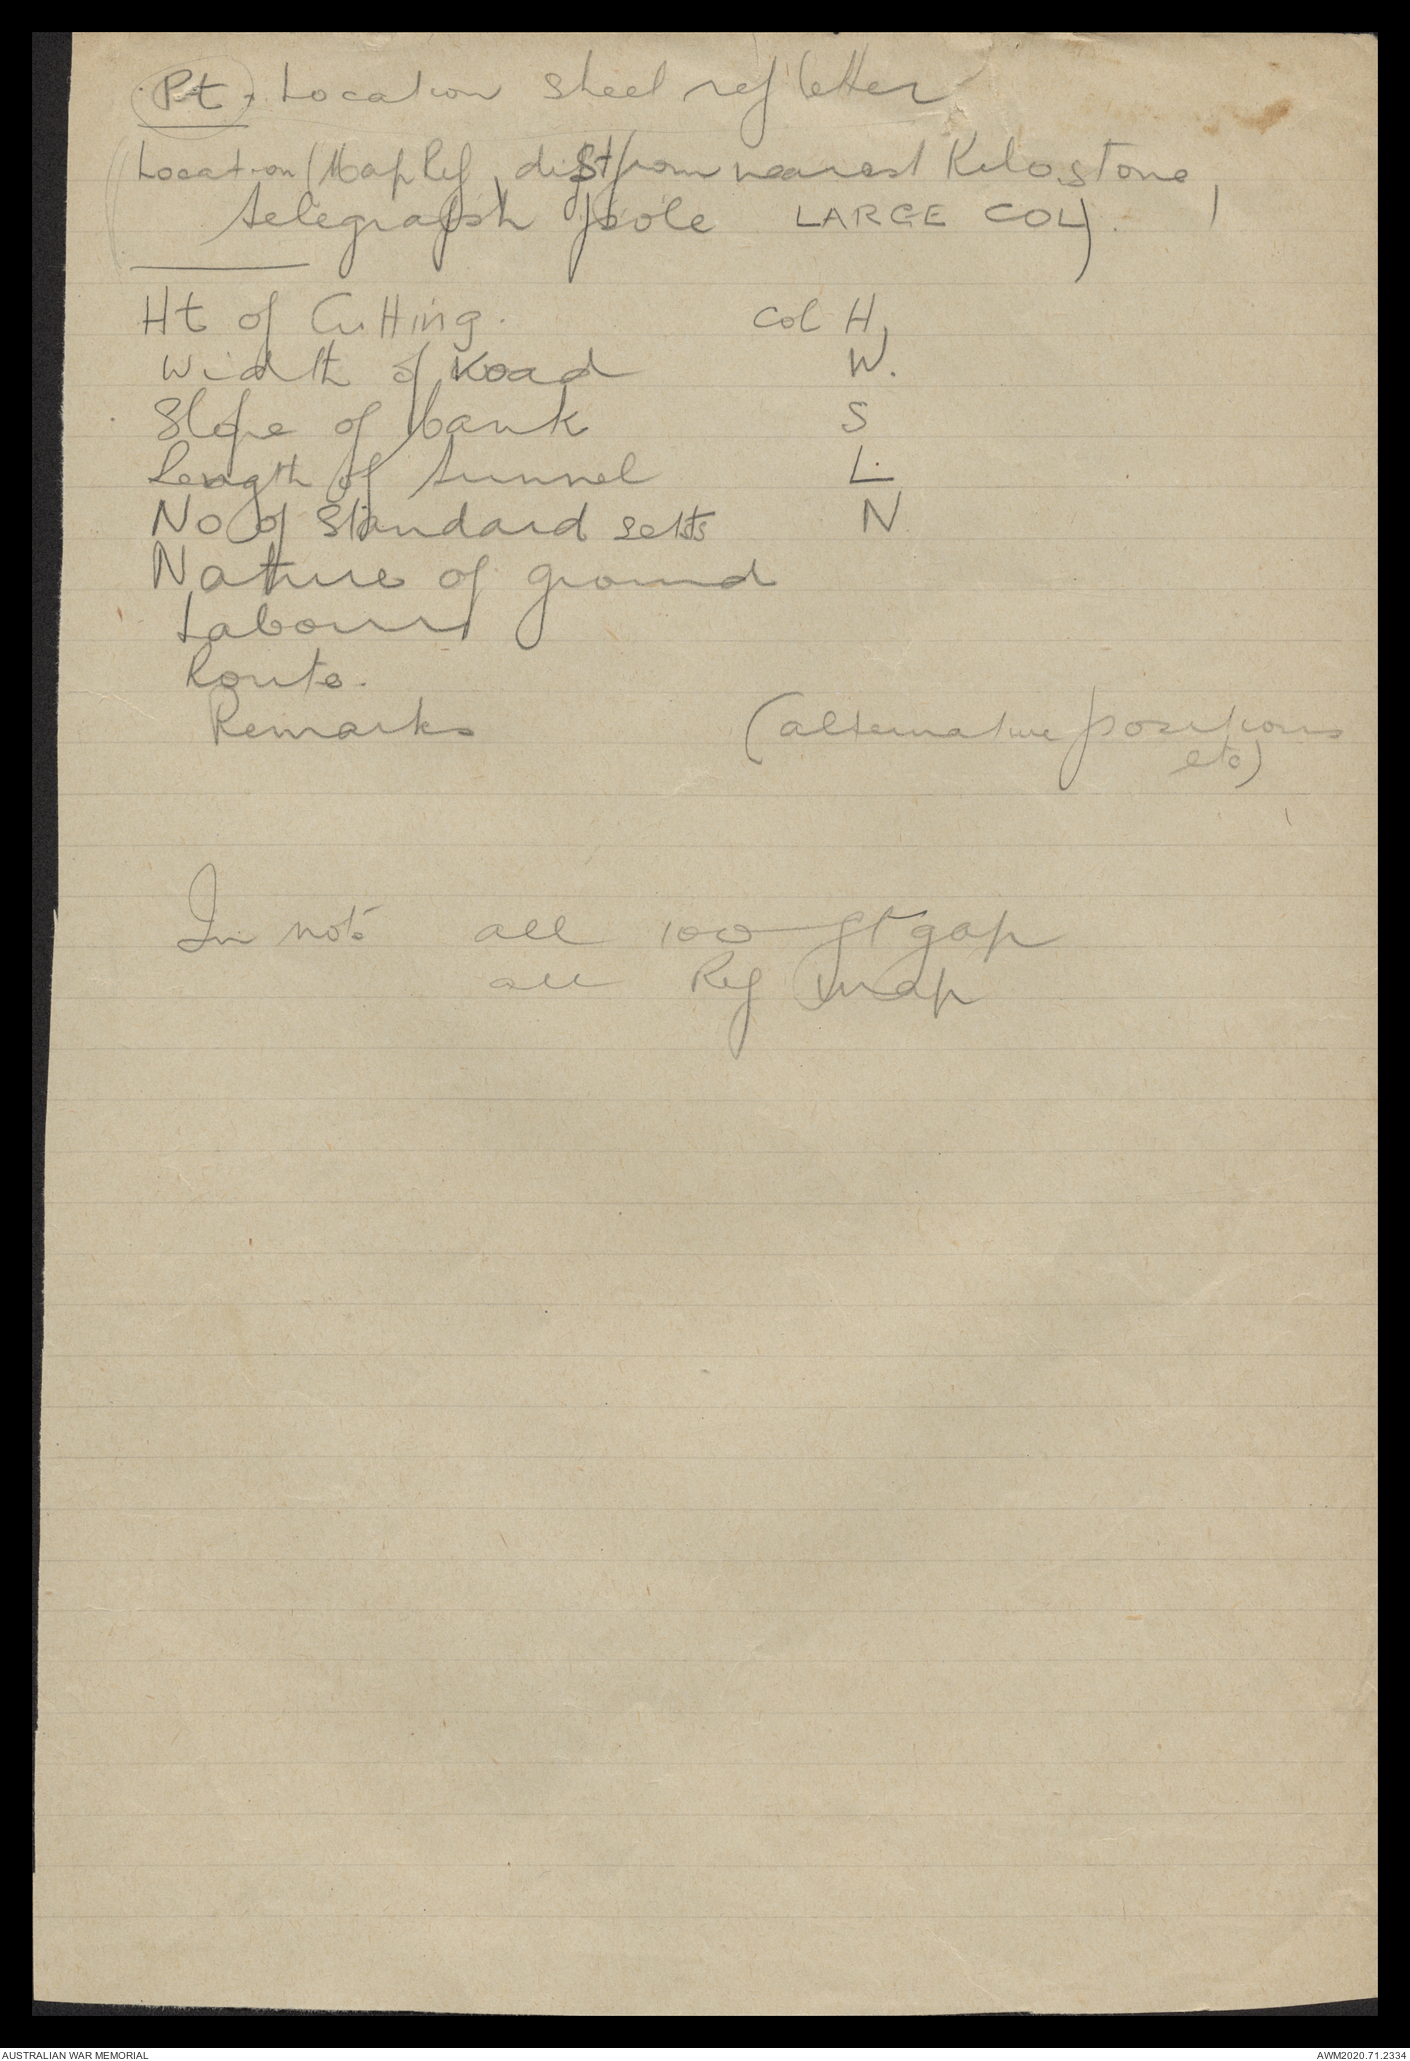 Pt. Location Sheet ref letter
Location (Map Ref, dist from nearest Kilostone,
telegraph pole LARGE COL).
Ht of Cutting. Col H,
Width of Road W.
Slope of bank S
Length of tunnel L.
No of Standard setts N
Nature of ground
Labour
Route.
Remarks (alternative positions
etc)
In note all 100 ft gap
all Ref map
AUSTRALIAN WAR MEMORIAL AWM2020.71.2334